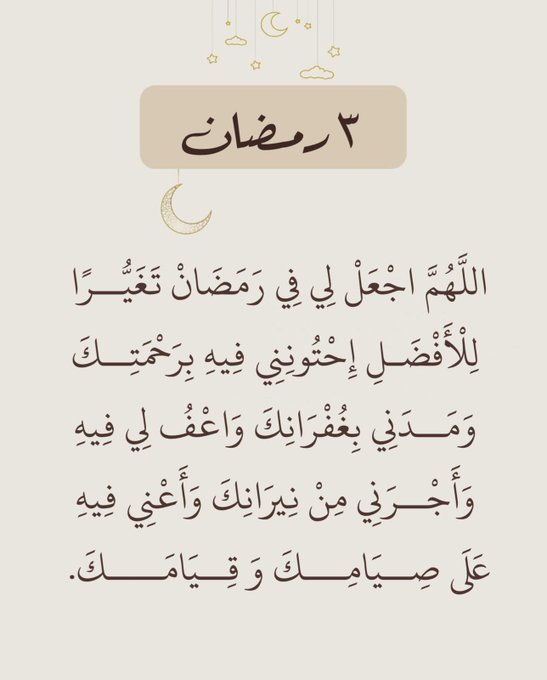 ٣ رمضان
اللَّهُمَّ اجْعَلْ لِي فِي رَمَضَانْ تَغَيُّـــرًا
لِلْأَفْضَــلِ إِحْتُونِنِي فِيهِ بِرَحْمَتِـــكَ
وَمَـــدَنِي بِغُفْرَانِكَ وَاعْفُ لِي فِيهِ
وَأَجْـــرَنِي مِنْ نِيرَانِكَ وَأَعْنِي فِيهِ
عَلَى صِـــيَامِـــكَ وَ قِـــيَامَـــــكَ.